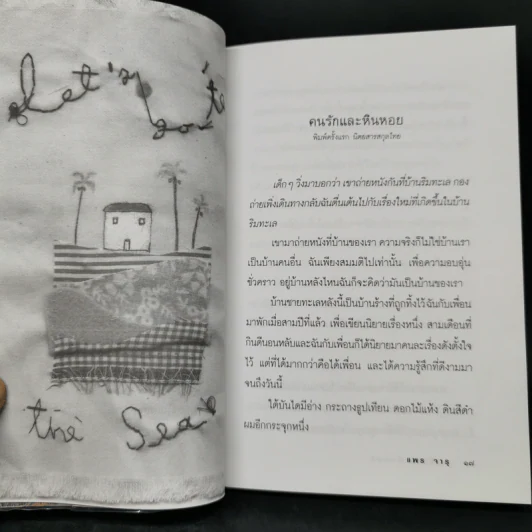 let's go to
the Sea
คนรักและหินหอย
พิมพ์ครั้งแรก นิตยสารสกุลไทย
เด็กๆ วิ่งมาบอกว่า เขาถ่ายหนังกันที่บ้านริมทะเล กอง
ถ่ายเพิ่งเดินทางกลับฉันตื่นเต้นไปกับเรื่องใหม่ที่เกิดขึ้นในบ้าน
ริมทะเล
เขามาถ่ายหนังที่บ้านของเรา ความจริงก็ไม่ใช่บ้านเรา
เป็นบ้านคนอื่น ฉันเพียงสมมติไปเท่านั้น เพื่อความอบอุ่น
ชั่วคราว อยู่บ้านหลังไหนฉันก็จะคิดว่ามันเป็นบ้านของเรา
บ้านชายทะเลหลังนี้เป็นบ้านร้างที่ถูกทิ้งไว้ฉันกับเพื่อน
มาพักเมื่อสามปีที่แล้ว เพื่อเขียนนิยายเรื่องหนึ่ง สามเดือนที่
กินดื่มนอนหลับและฉันกับเพื่อนก็ได้นิยายมาคนละเรื่องดังตั้งใจ
ไว้ แต่ที่ได้มากกว่าคือได้เพื่อน และได้ความรู้สึกที่ดีงามมา
จนถึงวันนี้
ใต้บันไดมีอ่าง กระถางธูปเทียน ดอกไม้แห้ง ดินสีดำ
ผมอีกกระจุกหนึ่ง
แพร จารุ ๑๗